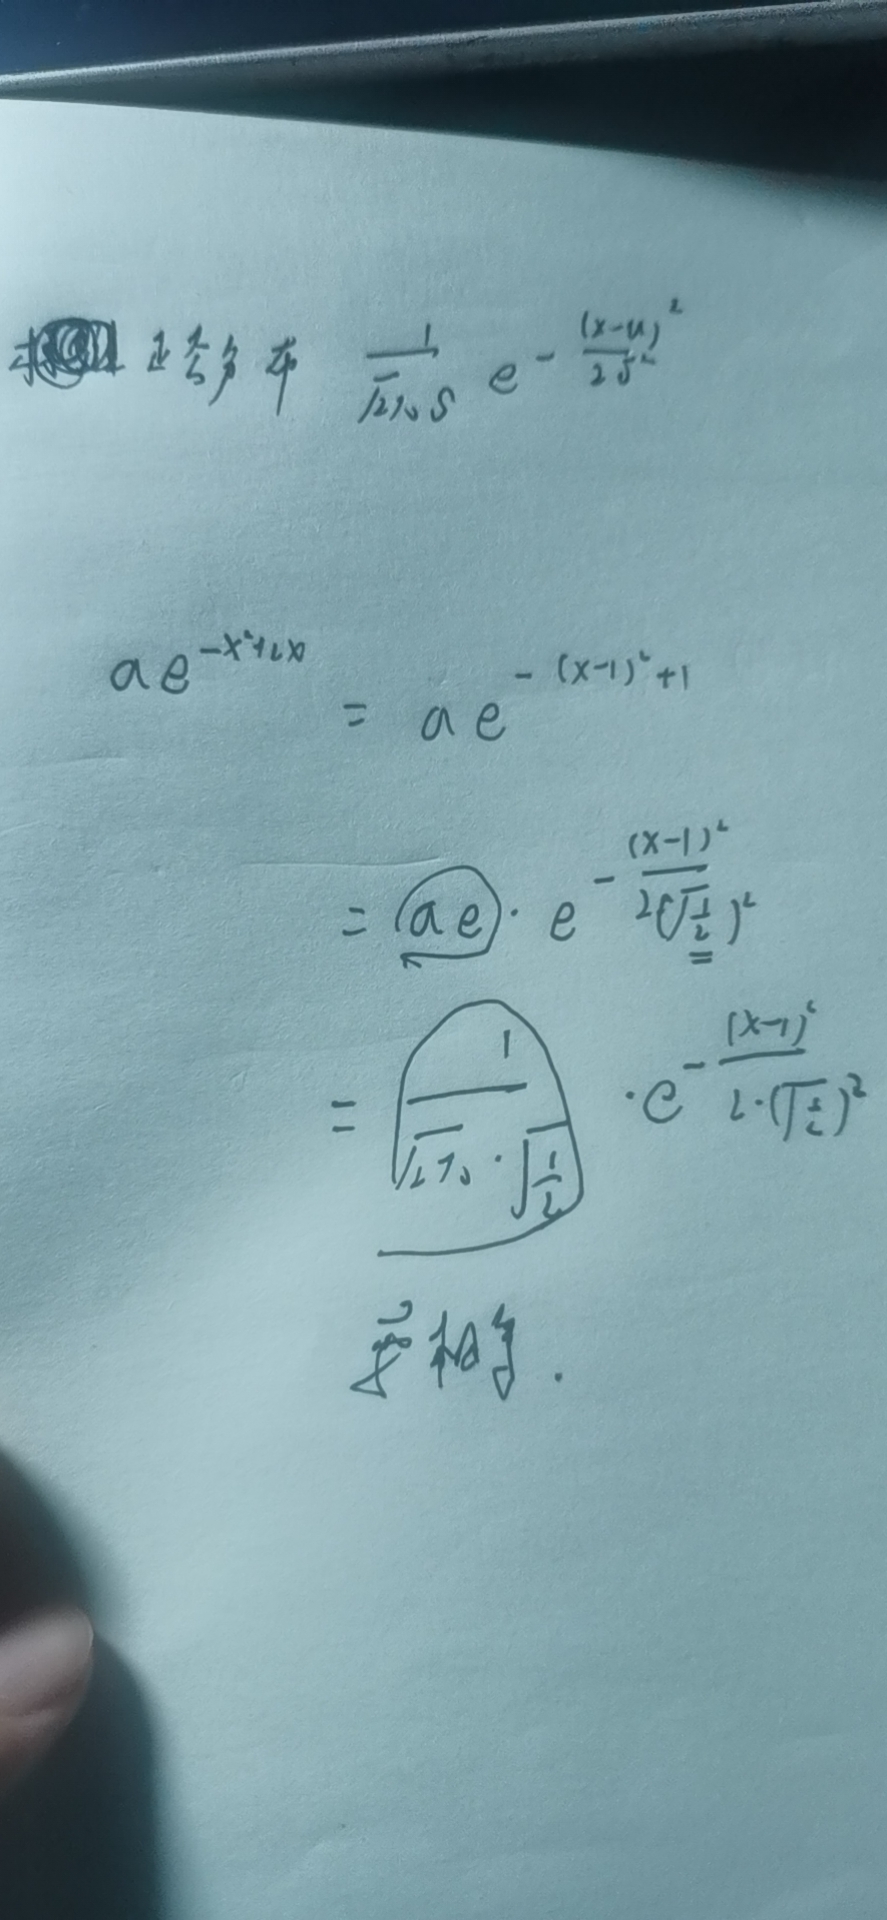 正态分布 1/(√2π δ) e^-(x-u)²/(2δ²)
ae^-x²+2x
= ae^-(x-1)²+1
= ae · e^-(x-1)²/(2(√(1/2))²)
= 1/(√2π · √(1/2)) · e^-(x-1)²/(2·(√(1/2))²)
要相等.